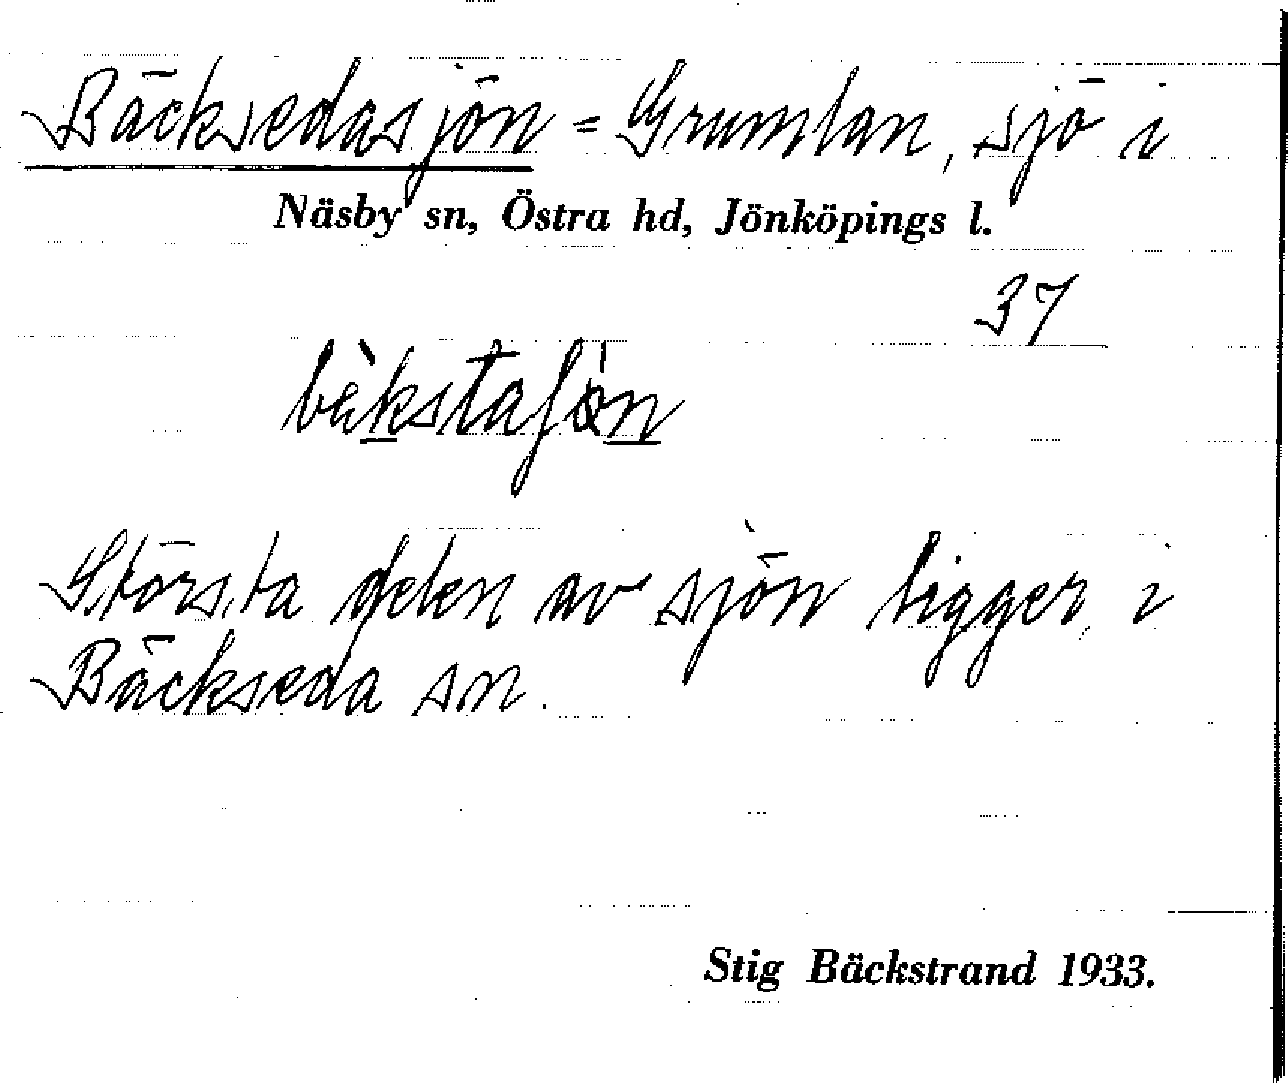 Bäcksedasjön = Grumlan, sjö i
Näsby sn, Östra hd, Jönköpings l.
37
Största delen av sjön ligger i
Bäckseda sn.
Stig Bäckstrand 1933.